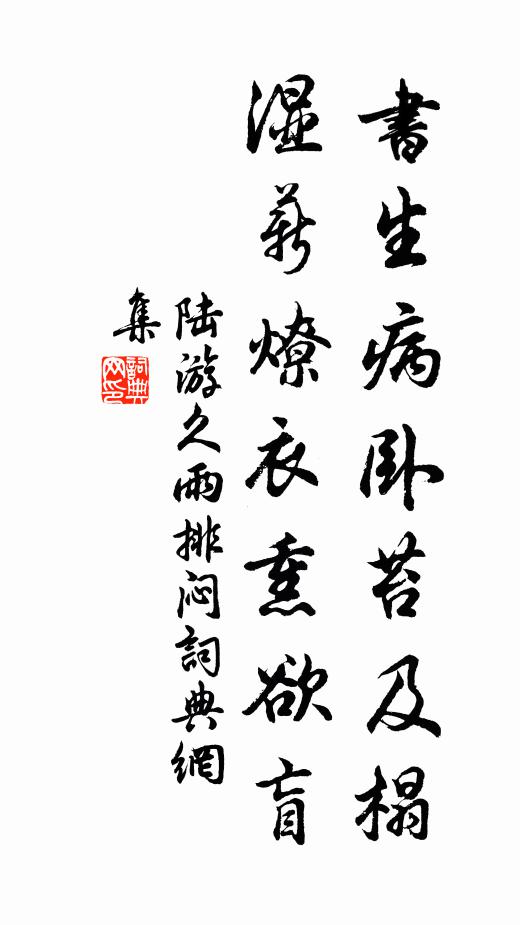 書生病卧苔及榻
湿薪燎衣熏欲盲
陆游久雨排闷詞典網
集
詞典
网印